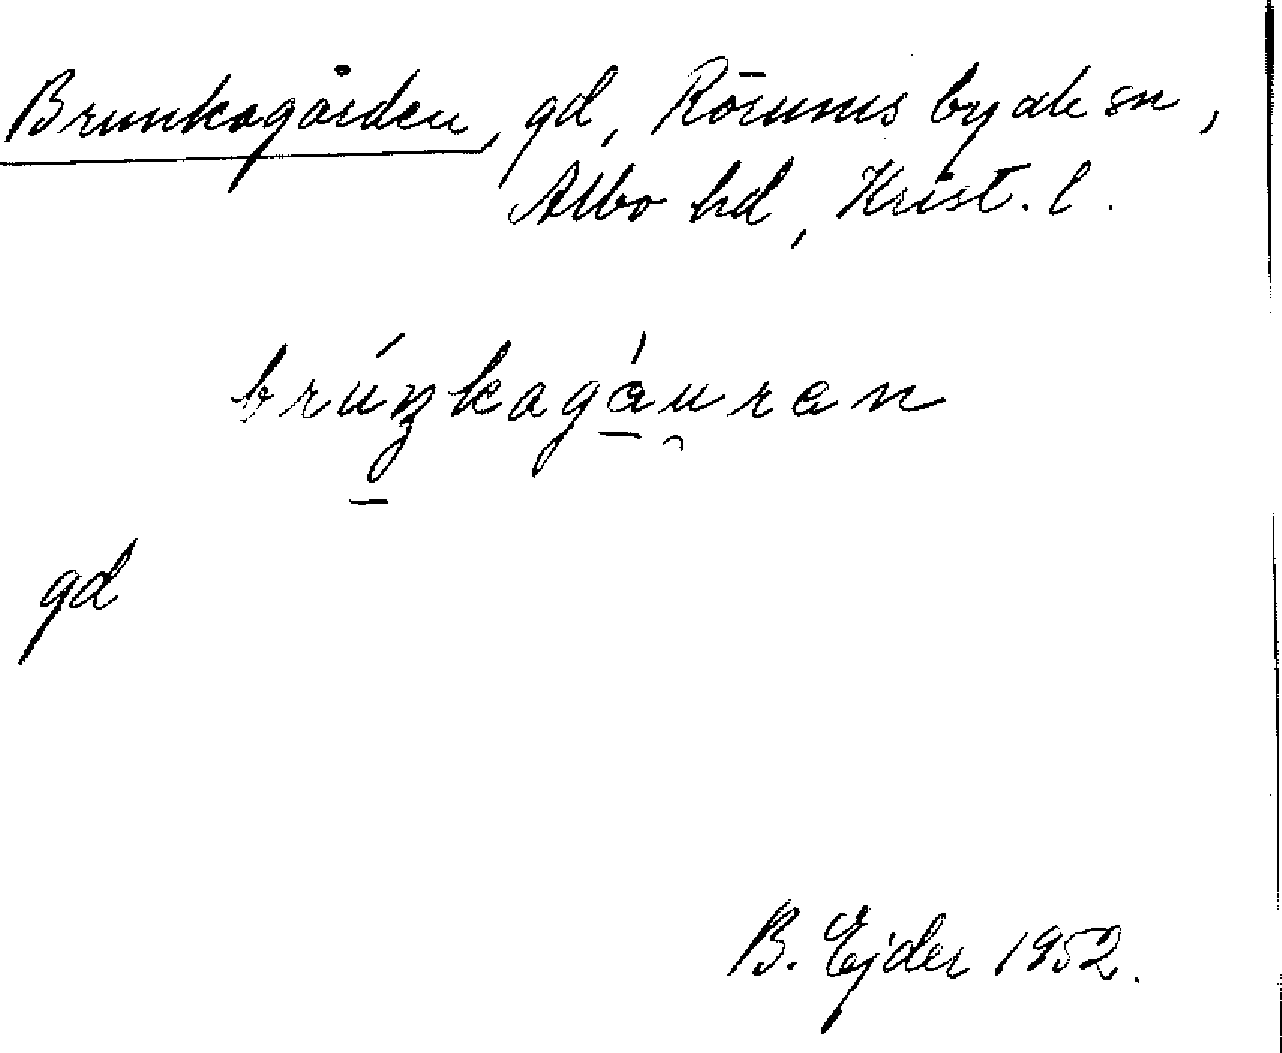 Brunkagården, gd, Rörums by ah sn,
Albo hd, Krist. l.
brúŋkagáu̯ran
gd
B. Ejder 1952.